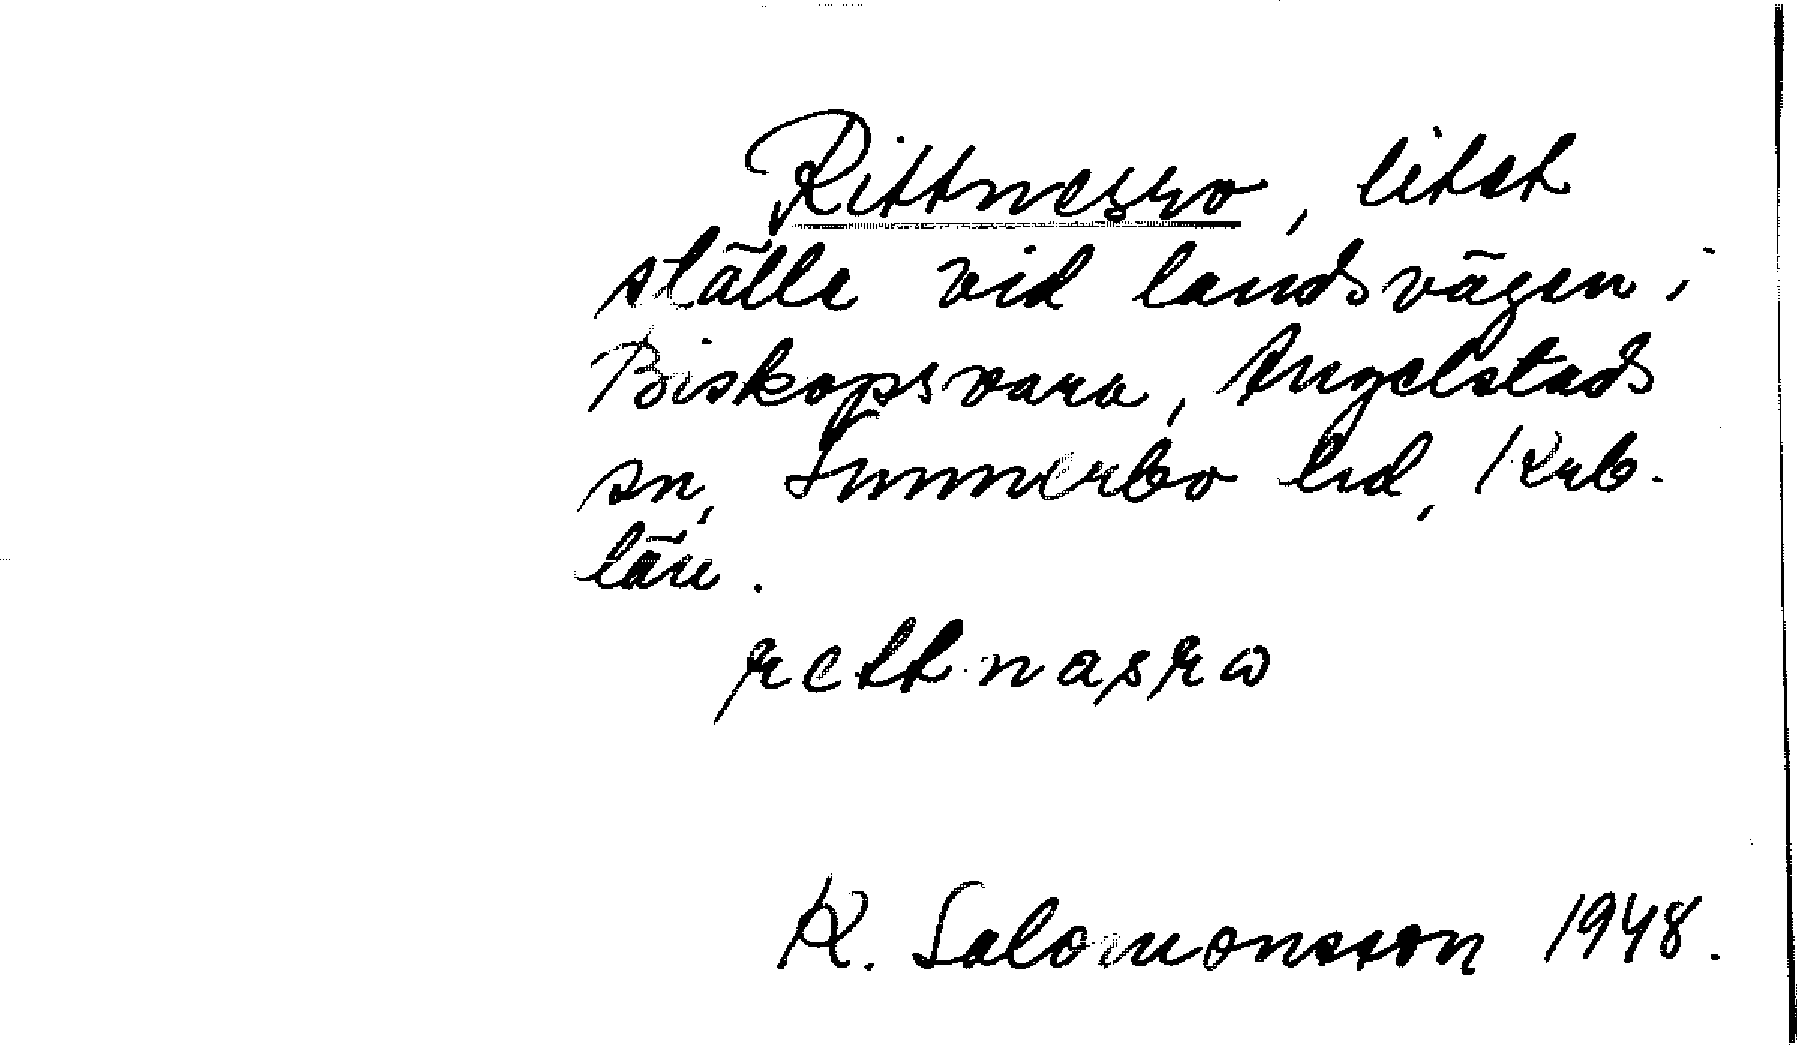 Rittnesro, litet
ställe vid landsvägen i
Biskopsvara, Angelstads
sn, Sunnerbo hd, Krb.
län.
rettnasrω
K. Salomonsson 1948.